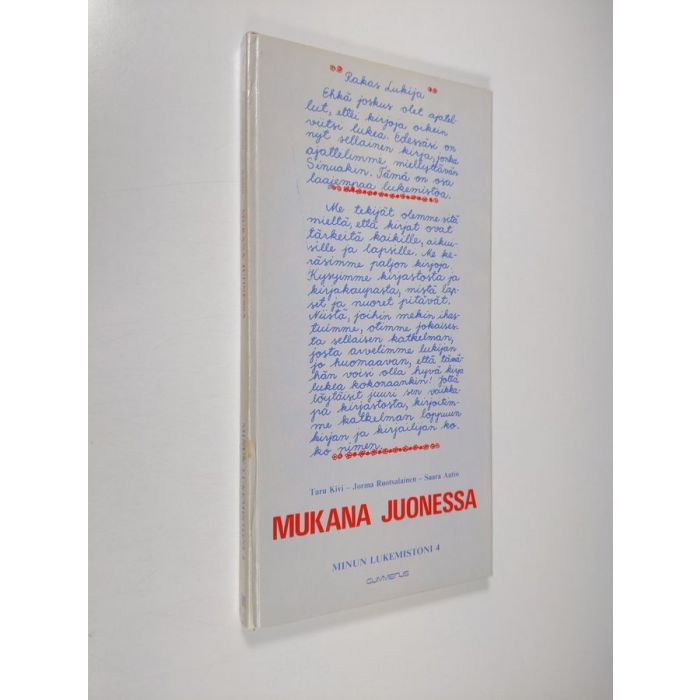 Rakas Lukija
Ehkä joskus olet ajatel-
lut, ettei kirjoja oikein
viitsi lukea. Edessäsi on
nyt sellainen kirja, jonka
ajattelimme miellyttävän
Sinuakin. Tämä on osa
laajempaa lukemistoa.
Me tekijät olemme sitä
mieltä, että kirjat ovat
tärkeitä kaikille, aikui-
sille ja lapsille. Me ke-
räsimme paljon kirjoja.
Kysyimme kirjastosta ja
kirjakaupasta, mistä lap-
set ja nuoret pitävät.
Niistä, joihin mekin ihas-
tuimme, otimme jokaises-
ta sellaisen katkelman,
josta arvelimme lukijan
jo huomaavan, että tämä-
hän voisi olla hyvä kirja
lukea kokonaankin! Jotta
löytäisit juuri sen vaikka-
pa kirjastosta, kirjoitim-
me katkelman loppuun
kirjan ja kirjailijan ko-
ko nimen.
Taru Kivi – Jorma Ruotsalainen – Saara Autio
MUKANA JUONESSA
MINUN LUKEMISTONI 4
GUMMERUS
MUKANA JUONESSA
MINUN LUKEMISTONI 4